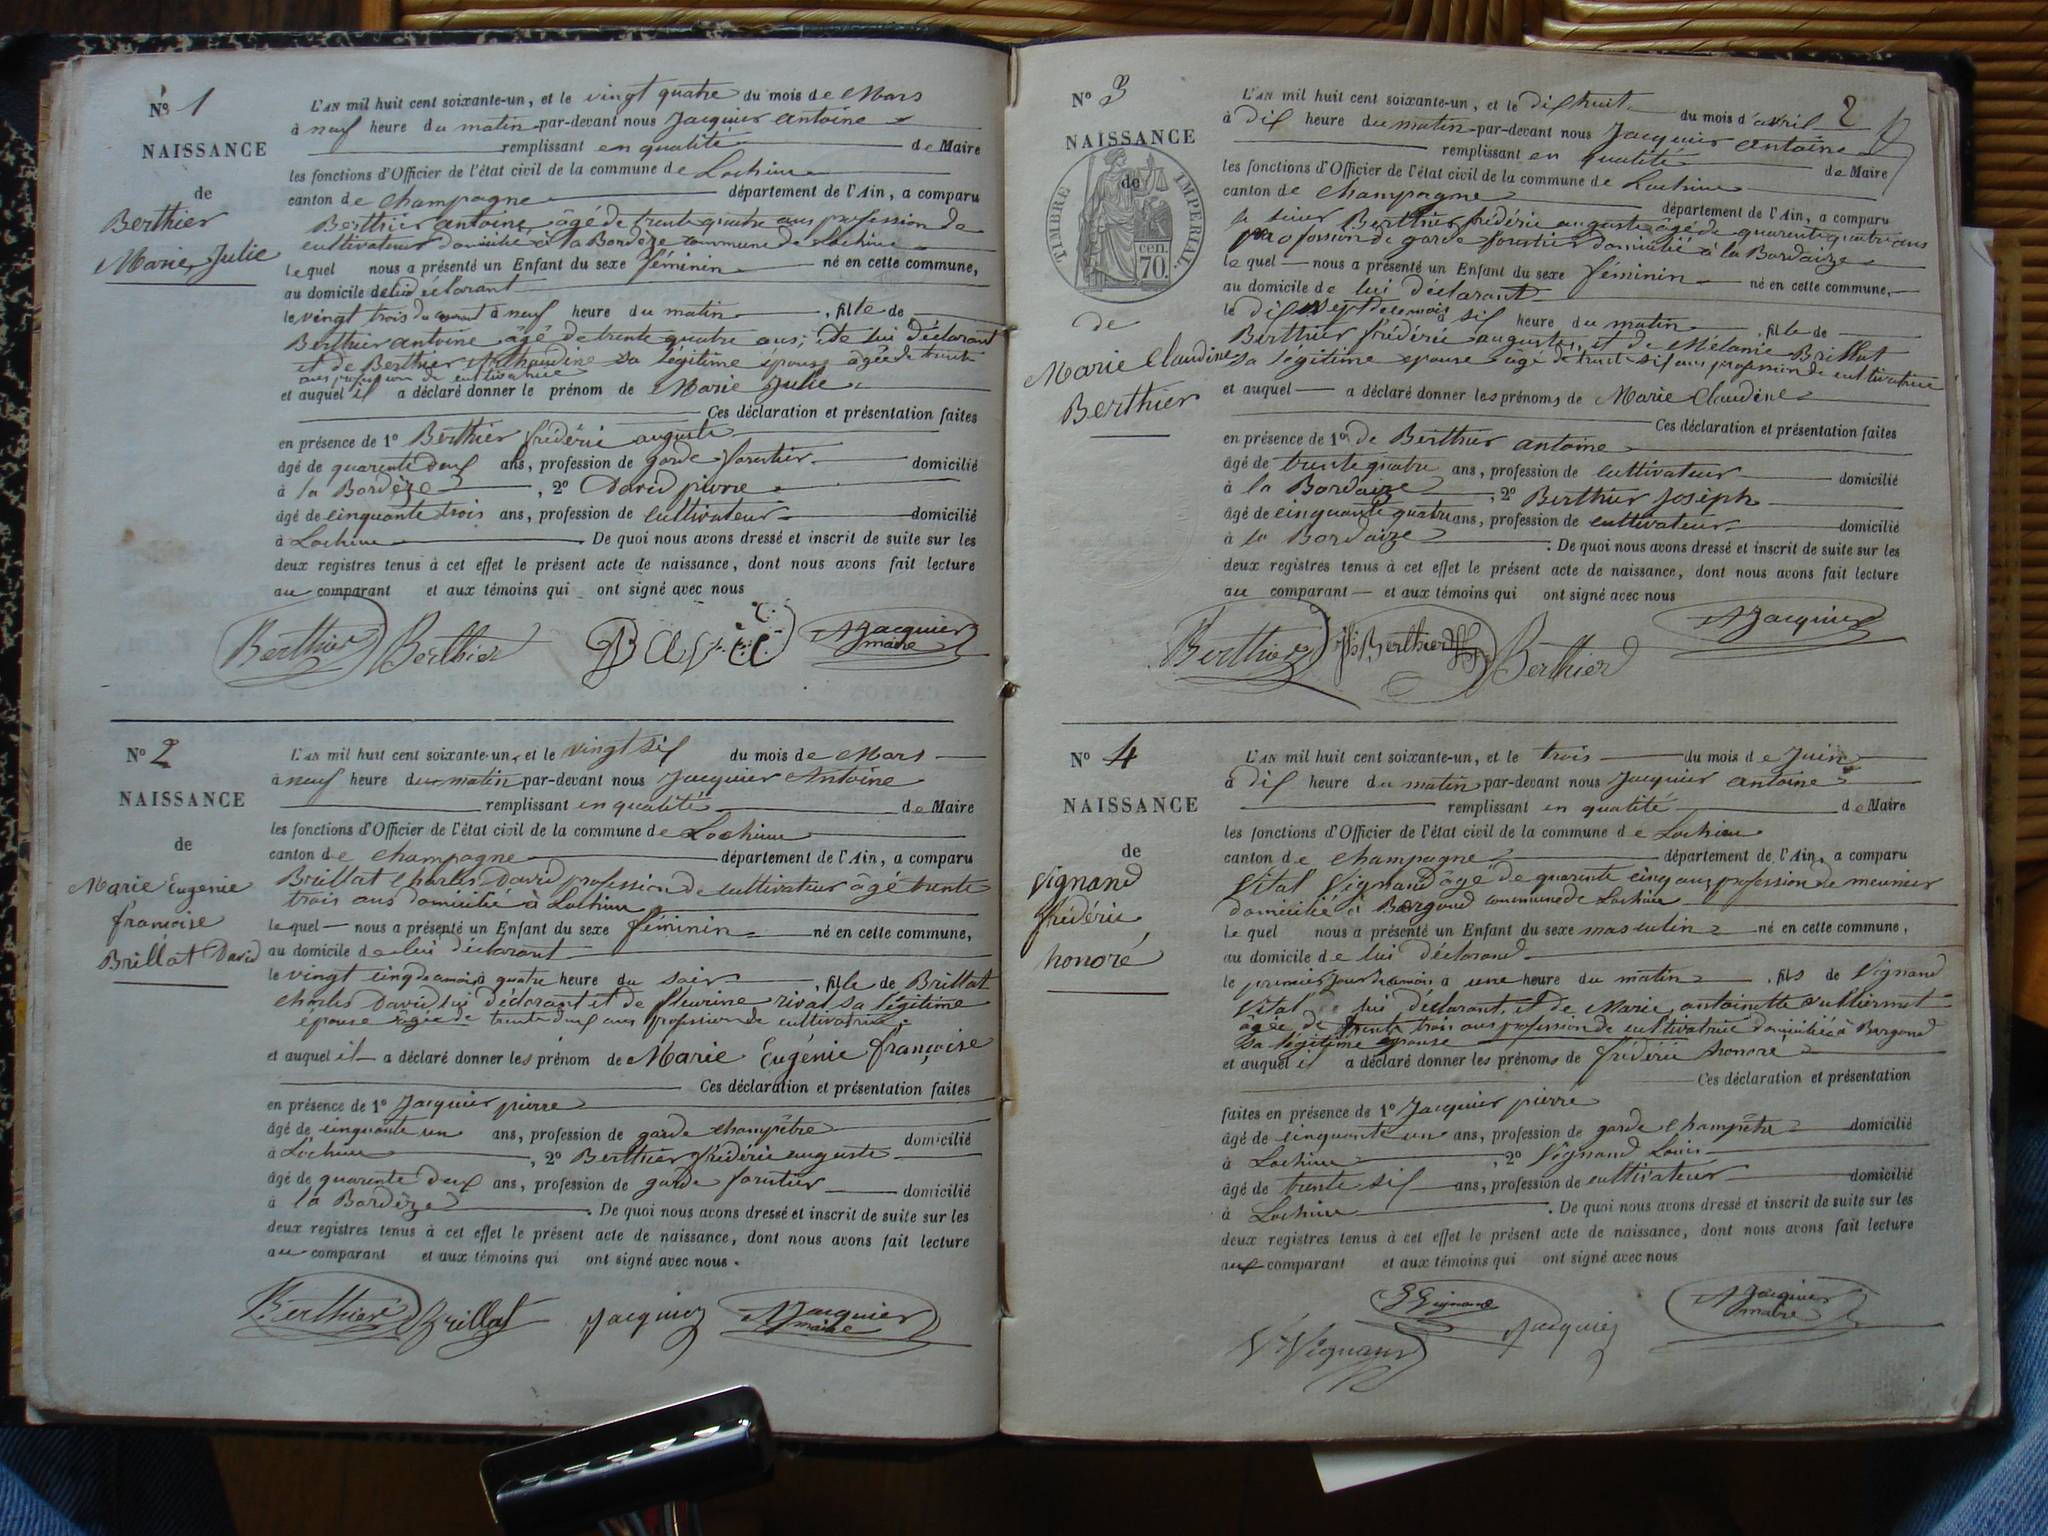 No 1
NAISSANCE
de
Berthier
Marie Julie
L'AN mil huit cent soixante-un, et le vingt quatre du mois de Mars
à neuf heure du matin par-devant nous Jacquier antoine
remplissant en qualité de Maire
les fonctions d'Officier de l'état civil de la commune de Lochieu
canton de champagne département de l'Ain, a comparu
Berthier antoine, âgé de trente quatre ans profession de
cultivateur domicilié à la Bordèze commune de Lochieu
lequel nous a présenté un Enfant du sexe féminin né en cette commune,
au domicile de lui déclarant
le vingt trois du courant à neuf heure du matin, fille de
Berthier antoine âgé de trente quatre ans, de lui déclarant
et de Berthier sa légitime épouse âgée de trente
ans profession de cultivatrice
et auquel il a déclaré donner le prénom de Marie Julie
Ces déclaration et présentation faites
en présence de 1o Berthier frédéric auguste
âgé de quarente deux ans, profession de garde forestier domicilié
à la Bordèze, 2o David pierre
âgé de cinquante trois ans, profession de cultivateur domicilié
à Lochieu. De quoi nous avons dressé et inscrit de suite sur les
deux registres tenus à cet effet le présent acte de naissance, dont nous avons fait lecture
au comparant et aux témoins qui ont signé avec nous
Berthier Berthier David Jacquier
maire
No 2
NAISSANCE
de
Marie Eugénie
françoise
Brillat David
L'AN mil huit cent soixante-un, et le vingt six du mois de Mars
à neuf heure du matin par-devant nous Jacquier Antoine
remplissant en qualité de Maire
les fonctions d'Officier de l'état civil de la commune de Lochieu
canton de champagne département de l'Ain, a comparu
Brillat Charles David profession de cultivateur âgé trente
trois ans domicilié à Lochieu
lequel nous a présenté un Enfant du sexe féminin né en cette commune,
au domicile de lui déclarant
le vingt cinq du mois à quatre heure du soir, fille de Brillat
Charles David lui déclarant et de fleurine rival sa légitime
épouse âgée de trente deux ans profession de cultivatrice
et auquel il a déclaré donner les prénom de Marie Eugénie françoise
Ces déclaration et présentation faites
en présence de 1o Jacquier pierre
âgé de cinquante un ans, profession de garde champêtre domicilié
à Lochieu, 2o Berthier frédéric auguste
âgé de quarente deux ans, profession de garde forestier domicilié
à la Bordèze. De quoi nous avons dressé et inscrit de suite sur les
deux registres tenus à cet effet le présent acte de naissance, dont nous avons fait lecture
au comparant et aux témoins qui ont signé avec nous.
Berthier Brillat Jacquier Jacquier
maire
2
No 3
NAISSANCE
de
TIMBRE IMPERIAL
cen.
70.
de
Marie Claudine
Berthier
L'AN mil huit cent soixante-un, et le dix huit du mois d'avril
à dix heure du matin par-devant nous Jacquier antoine
remplissant en qualité de Maire
les fonctions d'Officier de l'état civil de la commune de Lochieu
canton de champagne département de l'Ain, a comparu
le sieur Berthier frédéric auguste âgé de quarente quatre ans
profession de garde forestier domicilié à la Bordaize
lequel nous a présenté un Enfant du sexe féminin né en cette commune,
au domicile de lui déclarant
le dix sept de ce mois à six heure du matin, fille de
Berthier frédéric auguste, et de Mélanie Brillat
sa légitime épouse âgé de trente six ans profession de cultivatrice
et auquel a déclaré donner les prénoms de Marie Claudine
Ces déclaration et présentation faites
en présence de 1o de Berthier antoine
âgé de trente quatre ans, profession de cultivateur domicilié
à la Bordaize, 2o Berthier Joseph
âgé de cinquante quatre ans, profession de cultivateur domicilié
à la Bordaize. De quoi nous avons dressé et inscrit de suite sur les
deux registres tenus à cet effet le présent acte de naissance, dont nous avons fait lecture
au comparant et aux témoins qui ont signé avec nous
Berthier Berthier Berthier Jacquier
No 4
NAISSANCE
de
Vignand
frédéric
honoré
L'AN mil huit cent soixante-un, et le trois du mois de Juin
à dix heure du matin par-devant nous Jacquier antoine
remplissant en qualité de Maire
les fonctions d'Officier de l'état civil de la commune de Lochieu
canton de champagne département de l'Ain, a comparu
Vital Vignand âgé de quarente cinq ans profession de meunier
domicilié à commune de Lochieu
lequel nous a présenté un Enfant du sexe masculin né en cette commune,
au domicile de lui déclarand
le premier jour du mois à une heure du matin, fils de Vignand
Vital de lui déclarant, et de Marie antoinette
âgée de trente trois ans profession de cultivatrice domiciliée à
sa légitime épouse
et auquel il a déclaré donner les prénoms de frédéric honoré
Ces déclaration et présentation
faites en présence de 1o Jacquier pierre
âgé de cinquante un ans, profession de garde champêtre domicilié
à Lochieu, 2o Vignand Louis
âgé de trente six ans, profession de cultivateur domicilié
à Lochieu. De quoi nous avons dressé et inscrit de suite sur les
deux registres tenus à cet effet le présent acte de naissance, dont nous avons fait lecture
aux comparant et aux témoins qui ont signé avec nous
Vignand Jacquier Jacquier
maire
Vignand